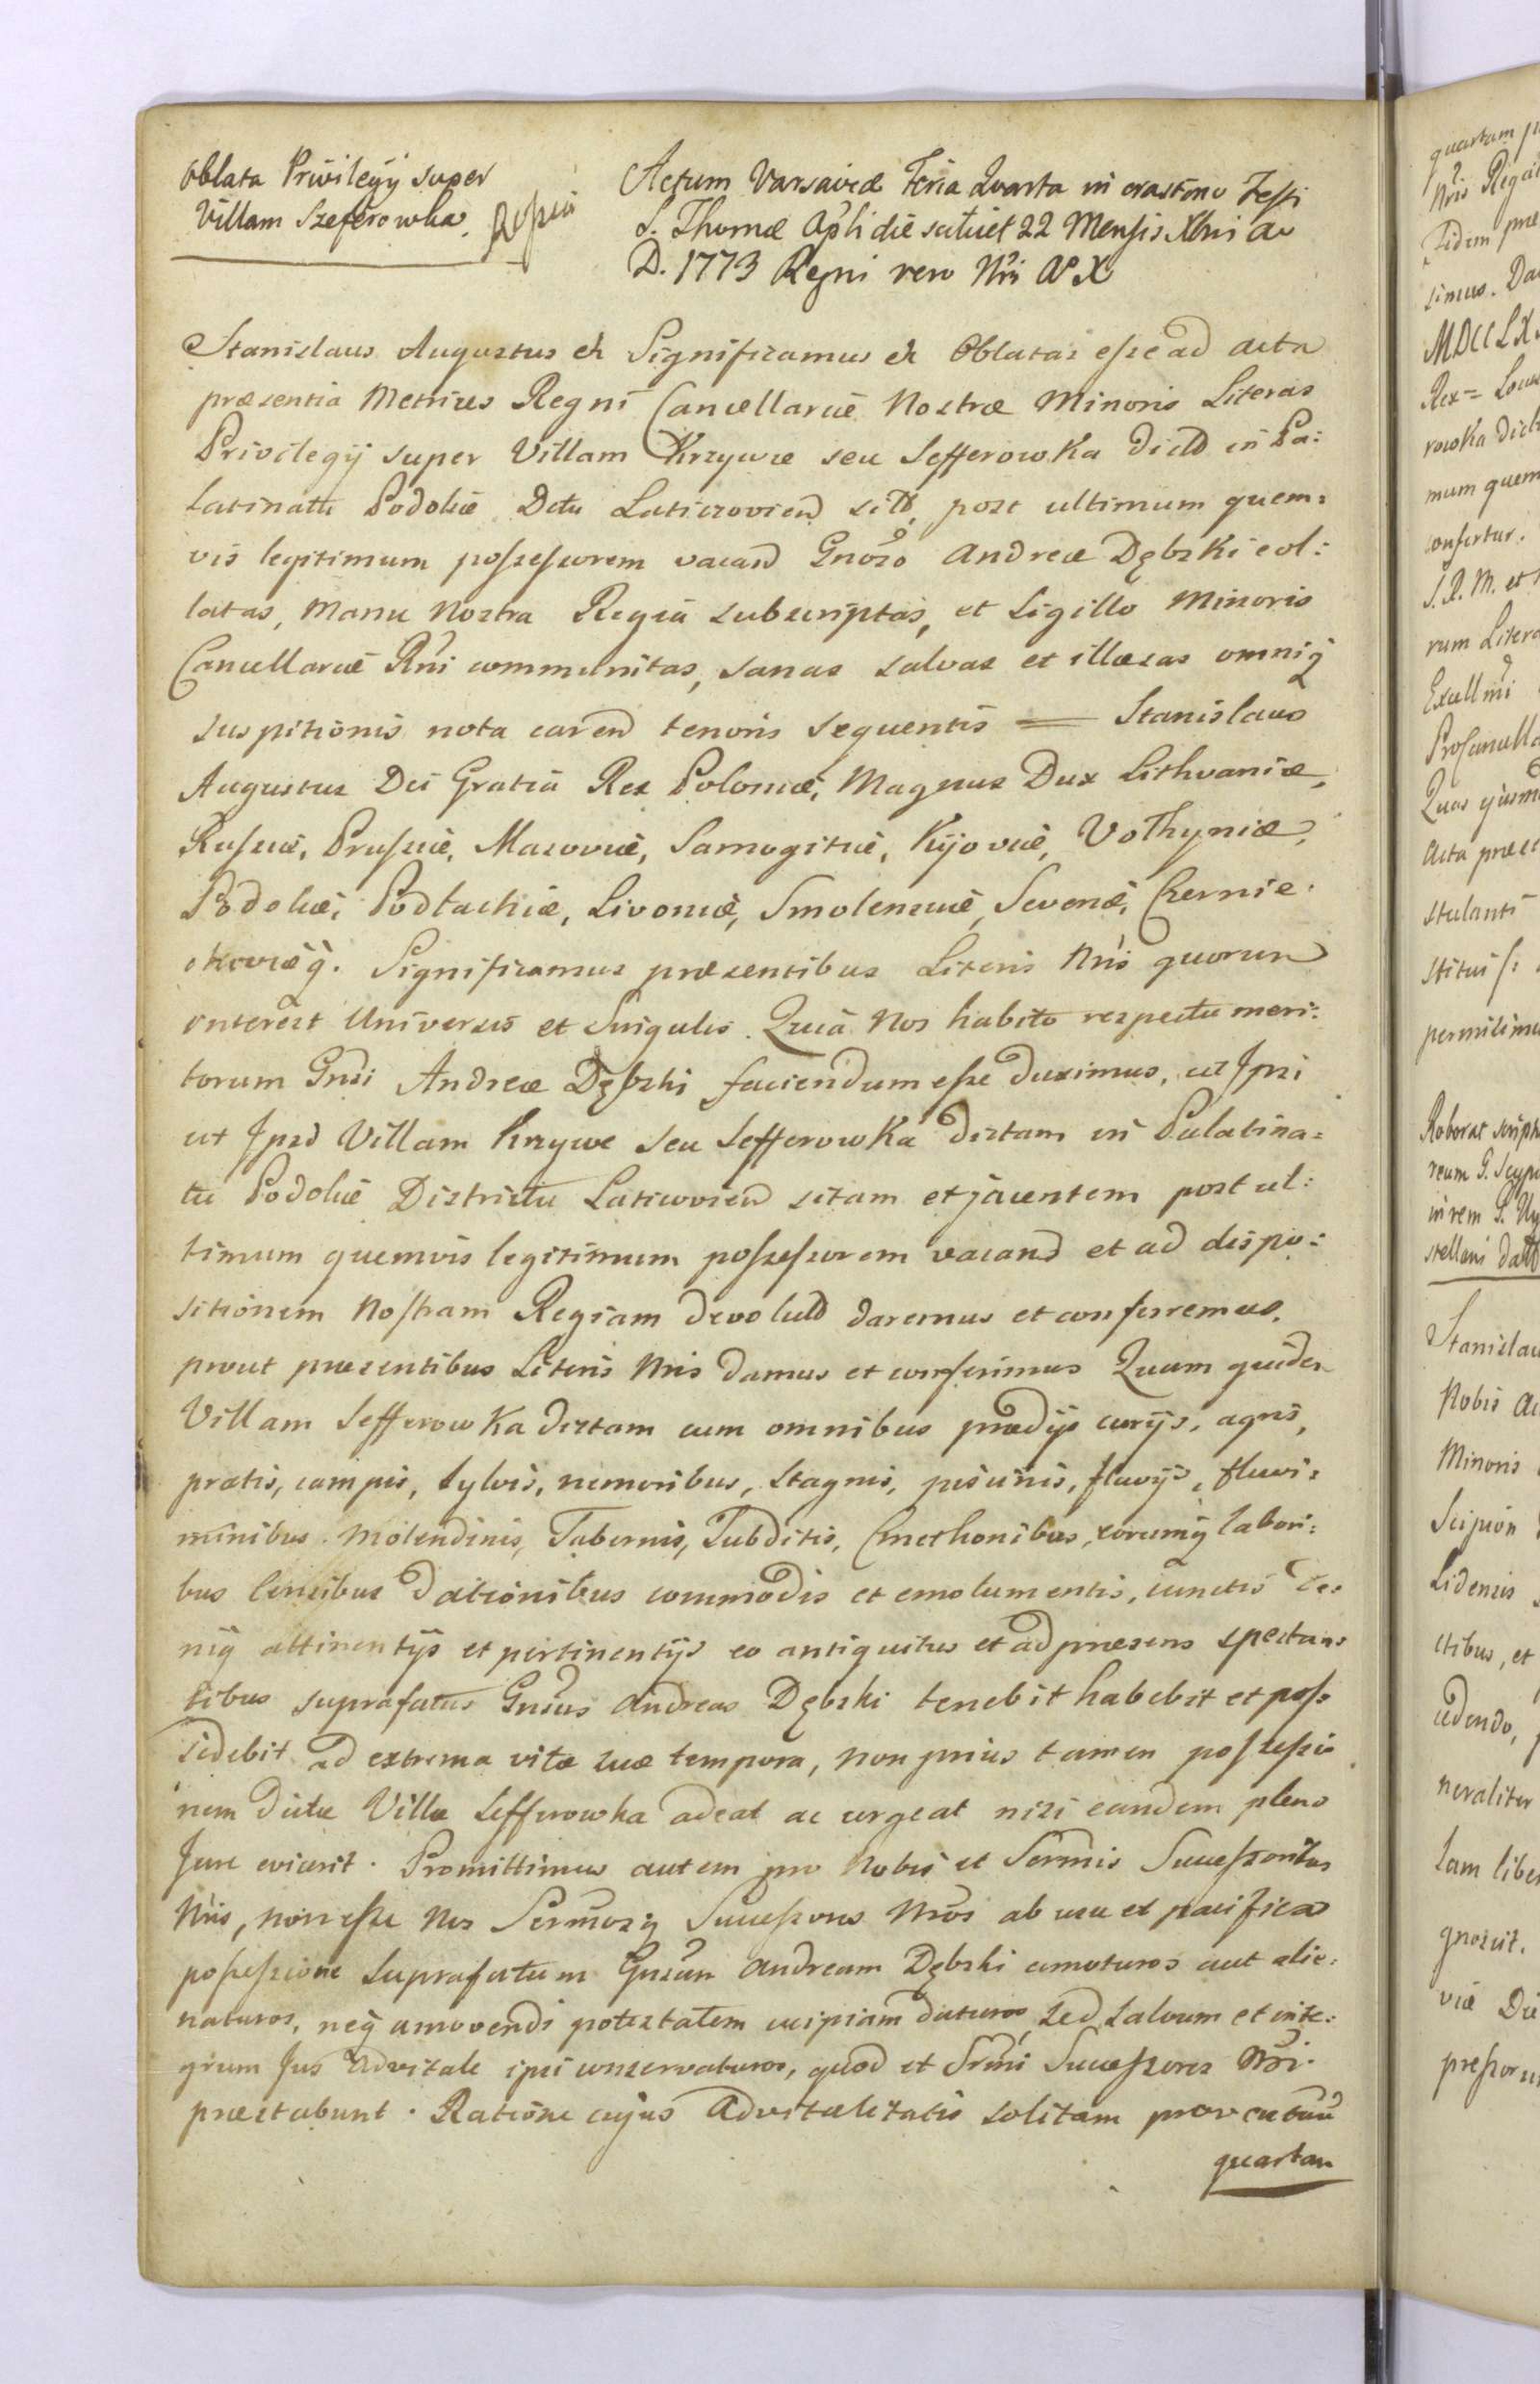 Oblata Privilegÿ super
Villam Szeferowka.
Actum Varsaviæ Feria Quarta in crastino Festi
S. Thomæ Apli die scilicet 22 Mensis Xbris Ao
D. 1773 Regni vero Nri Ao X
Stanislaus Augustus et Significamus et Oblatas esse ad acta
præsentia Metrices Regni Cancellariæ Nostræ Minoris Literas
Privilegÿ super Villam Krzywe seu Sefferowka dictd in Pa:
latinatu Podoliæ Dctu Laticzoviend sitd, post ultimum quem:
vis legitimum possessorem vacand Gnoso Andreæ Dębski col:
latas, Manu Nostra Regia subscriptas, et Sigillo Minoris
Cancellariæ Rni communitas, sanas salvas et illæsas omniq
suspitionis nota carend tenoris sequentis = Stanislaus
Augustus Dei Gratia Rex Poloniæ, Magnus Dux Lithvaniæ,
Russiæ, Prussiæ, Mazoviæ, Samogitiæ, Kijoviæ, Volhyniæ,
Podoliæ, Podlachiæ, Livoniæ, Smolensciæ, Severiæ, Czernie:
choviæq. Significamus præsentibus Literis Nris quorum
interest Universis et Singulis. Quia Nos habito respectu meri:
torum Gnsi Andreæ Dębski faciendum esse duximus, ut Ipsi
ut Ipsd Villam Krzywe seu Sefferowka dictam in Palatina:
tu Podoliæ Districtu Laticzoviend sitam et jacentem post ul:
timum quemvis legitimum possessorem vacand et ad dispo:
sitionem Nostram Regiam devolutd daremus et conferremus,
prout præsentibus Literis Nris damus et conferimus Quam quidem
Villam Sefferowka dictam cum omnibus prædÿs curÿs, agris,
pratis, campis, sylvis, nemoribus, stagnis, piscinis, fluvÿs, fluvi:
minibus Molendinis, Tabernis, Subditis, Cmethonibus, eorumq labori:
bus Censibus dationibus commodis et emolumentis, cunctis de:
niq attinentÿs et pertinentÿs eo antiquitus et ad præsens spectan:
tibus suprafatus Gnsus Andreas Dębski tenebit habebit et pos:
sidebit ad extrema vitæ suæ tempora, non prius tamen possessio
nem dictæ Villæ Sefferowka adeat ac urgeat nisi eandem pleno
Jure evicerit. Promittimus autem pro Nobis et Sermis Successoribus
Nris, non esse Nos Sermosq Successores Nros ab usu et pacifica
possessione Suprafatum Gnsum Andream Dębski amoturos aut alie:
naturos, neq amovendi potestatem cuipiam daturos, sed salvum et inte:
grum Jus advitale ipsi conservaturos, quod et Srmi Successores Nri
præstabunt. Ratione cujus Advitalitatis solitam proventuum
quartam